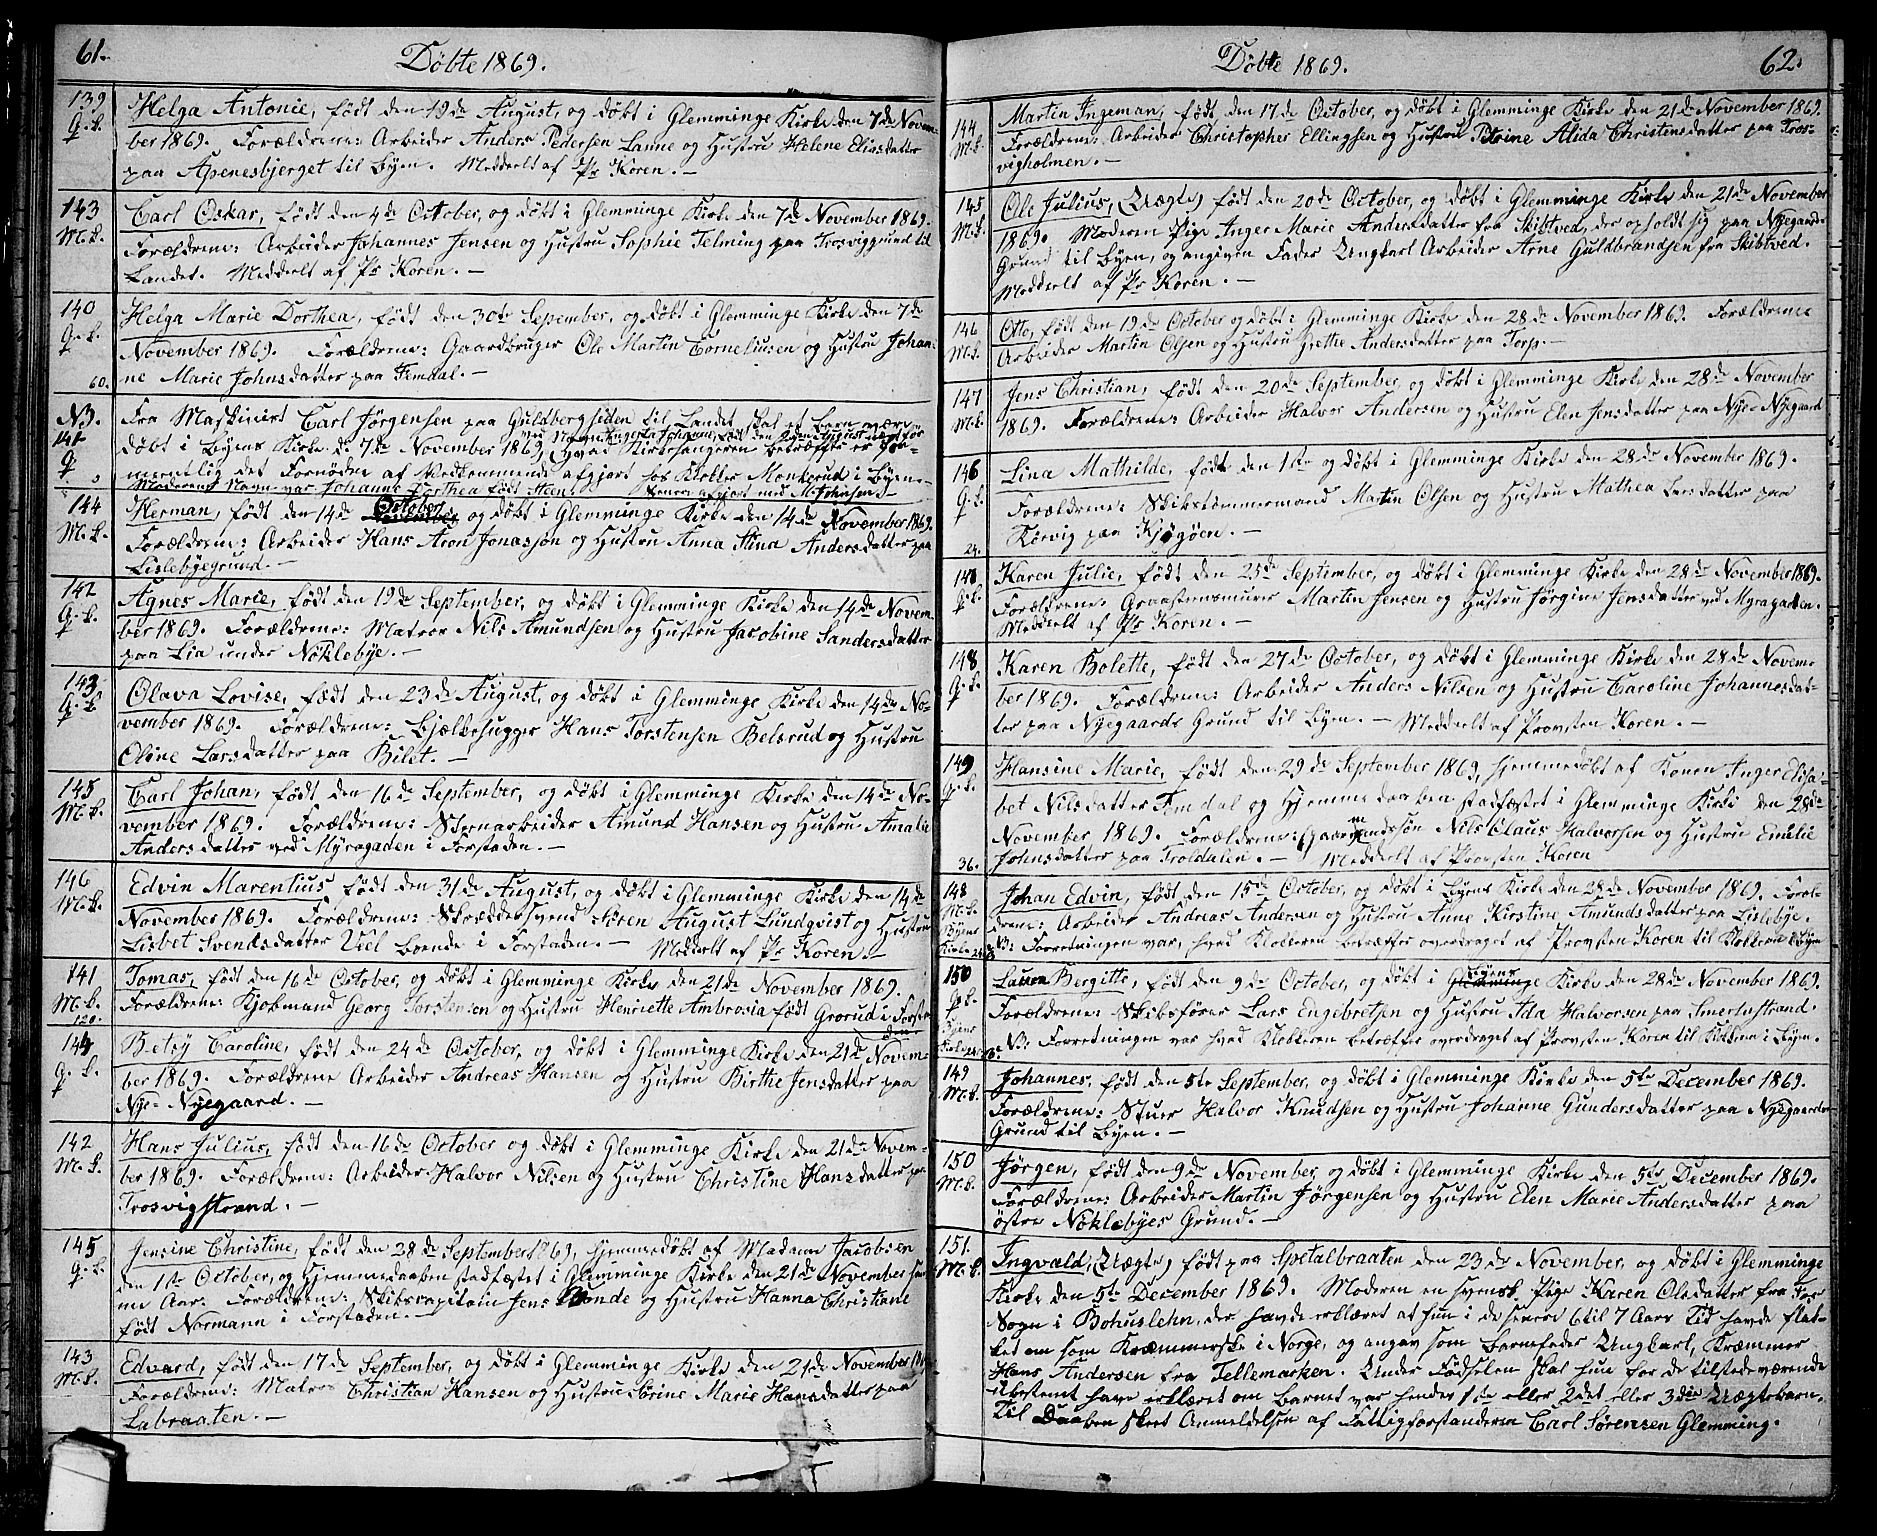 61.
Døbte 1869.
139
Q. L.
Helga Antonie, født den 19de August, og døbt i Glemminge Kirke den 7de Novem-
ber 1869. Forældrene: Arbeider Anders Pedersen Lanne og Hustru Helene Eliasdatter
paa Apenesbjerget til Byen. Meddelt af Pr Koren. –
143
M. L.
Carl Oskar, født den 4de October, og døbt i Glemminge Kirke den 7de November 1869.
Forældrene: Arbeider Johannes Jensen og Hustru Sophie Telming paa Trosviggrund til
Landet. Meddelt af Pr Koren. –
140
Q. L.
60.
Helga Marie Dorthea, født den 30te Sepember, og døbt i Glemminge Kirke den 7de
November 1869. Forældrene: Gaardbruger Ole Martin Corneliusen og Hustru Johan-
ne Marie Johnsdatter paa Femdal. –
NB.
141
Q
Fra Maskinist Carl Jörgensen paa Guldbergsiden til Landet skal et Barn være
døbt i Byens Kirke d. 7de November 1869, hvad Kirkesangeren betræffer er
mentlig det Fornødne af Vedkommende afgjort hos Klokker Monkerud i Byen. –
Moderens Navn var Johanne Dorthea født Steen.
144
M. L.
Herman, født den 14de October og døbt i Glemminge Kirke den 14de November 1869.
Forældrene: Arbeider Hans Aron Jonassøn og Hustru Anna Stina Andersdatter paa
Lislebyegrund. –
142
Q. L.
Agnes Marie, født den 19de September, og døbt i Glemminge Kirke den 14de Novem-
ber 1869. Forældrene: Matros Nils Amundsen og Hustru Jacobine Sandersdatter
paa Lia under Nöklebye. –
143
Q. L.
Olava Lovise, født den 23de August, og døbt i Glemminge Kirke den 14de No-
vember 1869. Forældrene: Bjelkehugger Hans Torstensen Belsrud og Hustru
Oline Larsdatter paa Bilet. –
145
M. L.
Carl Johan, født den 16de September, og døbt i Glemminge Kirke den 14de No-
vember 1869. Forældrene: Stenarbeider Amund Hansen og Hustru Amalie
Andersdatter ved Myragaden i Forstaden. –
146
M. L.
Edvin Marentius, født den 31de August, og døbt i Glemminge Kirke den 14de
November 1869. Forældrene: Skræddersvend Sören August Lundqvist og Hustru
Lisbet Svendsdatter Viel boende i Forstaden. – Meddelt af Pr Koren. –
141
M. L.
120.
Tomas, født den 16de October, og døbt i Glemminge Kirke den 21de November 1869.
Forældrene: Kjøbmand Georg Torstensen og Hustru Henriette Ambrosia født Grorud i Forsta-
den
144
Q. L.
Betsy Caroline, født den 24de October, og døbt i Glemminge Kirke den 21de Novem-
ber 1869. Forældrene Arbeider Andreas Hansen og Hustru Birthe Jensdatter paa
Nye-Nyegaard. –
142
M. L.
Hans Julius, født den 16de October og døbt i Glemminge Kirke den 21de Novem-
ber 1869. Forældrene: Arbeider Halvor Nilsen og Hustru Christine Hansdatter paa
Trosvigstrand. –
145
Q. L.
Jensine Christine, født den 28de September 1869, hjemmedøbt af Madame Jacobsen
den 1ste October, og Hjemmedaaben stadfæstet i Glemminge Kirke den 21de November sam-
me Aar. Forældrene: Skibscapitain Jens Bonde og Hustru Hanna Christiane
født Normann i Forstaden. –
143
M. L.
Edvard, født den 17de September, og døbt i Glemminge Kirke den 21de November 1869.
Forældrene: Matros Christian Hansen og Hustru Serine Marie Hansdatter paa
Labraaten. –
Døbte 1869.
62.
144
M. L.
Martin Ingeman, født den 17de October, og døbt i Glemminge Kirke den 21de November 1869.
Forældrene: Arbeider Christopher Ellingsen og Hustru Petrine Alida Christensdatter paa Tros-
vigholmen. –
145
M. L.
Ole Julius, (Uægte) født den 20de October, og døbt i Glemminge Kirke den 21de November
1869. Moderen Pige Inger Marie Andersdatter fra Skibtved, der opholdt sig paa Nyegaards
Grund til Byen, og angiven Fader Ungkarl Arbeider Arne Guldbrandsen fra Skibtved.
Meddelt af Pr Koren. –
146
M. L.
Otto, født den 19de October og døbt i Glemminge Kirke den 28de November 1869. Forældrene
Arbeider Martin Olsen og Hustru Grethe Andersdatter paa Torp. –
147
M. L.
Jens Christian, født den 20de September, og døbt i Glemminge Kirke den 28de November
1869. Forældrene: Arbeider Halvor Andersen og Hustru Elen Jensdatter paa Nye-Nyegaard
146
Q. L.
24.
Lina Mathilde, født den 1ste og døbt i Glemminge Kirke den 28de November 1869.
Forældrene: Skibstømmermand Martin Olsen og Hustru Mathea Larsdatter paa
Torvig paa Kjøgöen. –
147
Q. L.
Karen Julie, født den 25de September, og døbt i Glemminge Kirke den 28de November 1869.
Forældrene: Graastensmurer Martin Jensen og Hustru Jörgine Jensdatter ved Myragaden.
Meddelt af Pr Koren. –
148
Q. L.
Karen Bolette, født den 27de October, og døbt i Glemminge Kirke den 28de Novem-
ber 1869. Forældrene: Arbeider Anders Nilsen og Hustru Caroline Johannesdat-
ter paa Nyegaards Grund til Byen. – Meddelt af Provsten Koren. –
149
Q. L.
36.
Hansine Marie, født den 29de September 1869, hjemmedøbt af Konen Inger Elisa-
bet Nilsdatter Femdal og Hjemmedaaben stadfæstet i Glemminge Kirke den 28de
November 1869. Forældrene: Gaardmandssøn Nils Claus Halvorsen og Hustru Emilie
Johnsdatter paa Troldalen. – Meddelt af Provsten Koren
148
M. L.
Byens
Kirke
Johan Edvin, født den 15de October, og døbt i Byens Kirke den 28de November 1869. Foræl-
drene: Arbeider Andreas Andersen og Hustru Anne Kirstine Amundsdatter paa Lislebye.
NB: Forretningen var, hvad Klokkeren betræffer overdraget af Provsten Koren til Klokkeren i Byen
150
Q. L.
Byens
Kirke
Laura Bergitte, født den 9de October, og døbt i Byens Kirke den 28de November 1869.
Forældrene: Skibsfører Lars Engebretsen og Hustru Ida Halvorsen paa Smertustrand.
NB: Forretningen var hvad Klokkeren betræffer overdraget af Provsten Koren til Klokkeren i Byen.
149
M. L.
Johannes, født den 5te September, og døbt i Glemminge Kirke den 5te December 1869.
Forældrene: Stuer Halvor Knudsen og Hustru Johanne Gundersdatter paa Nyegaards
Grund til Byen. –
150
M. L.
Jørgen, født den 9de November, og døbt i Glemminge Kirke den 5te December 1869.
Forældrene: Arbeider Martin Jörgensen og Hustru Elen Marie Andersdatter paa
östre Nöklebyes Grund. –
151.
M. L.
Ingvald, (Uægte) født paa Spetalbraaten den 23de November, og døbt i Glemminge
Kirke den 5te December 1869. Moderen en svensk Pige Karen Olsdatter fra Tos
Sogn i Bohuslehn, der havde erklæret at hun i de senere 6 til 7 Aars Tid havde flak-
ket om som Kræmmerske i Norge, og angav som Barnefader Ungkarl, Kræmmer
Hans Andersen fra Tellemarken. Under Fødselen skal hun for de tilstedeværende
ubestemt have erklæret om Barnet var hendes 1ste eller 2det eller 3die Uægtebarn.
Til Daaben skeet Anmeldelsen af Fattigforstanderen Carl Sörensen Glemming.